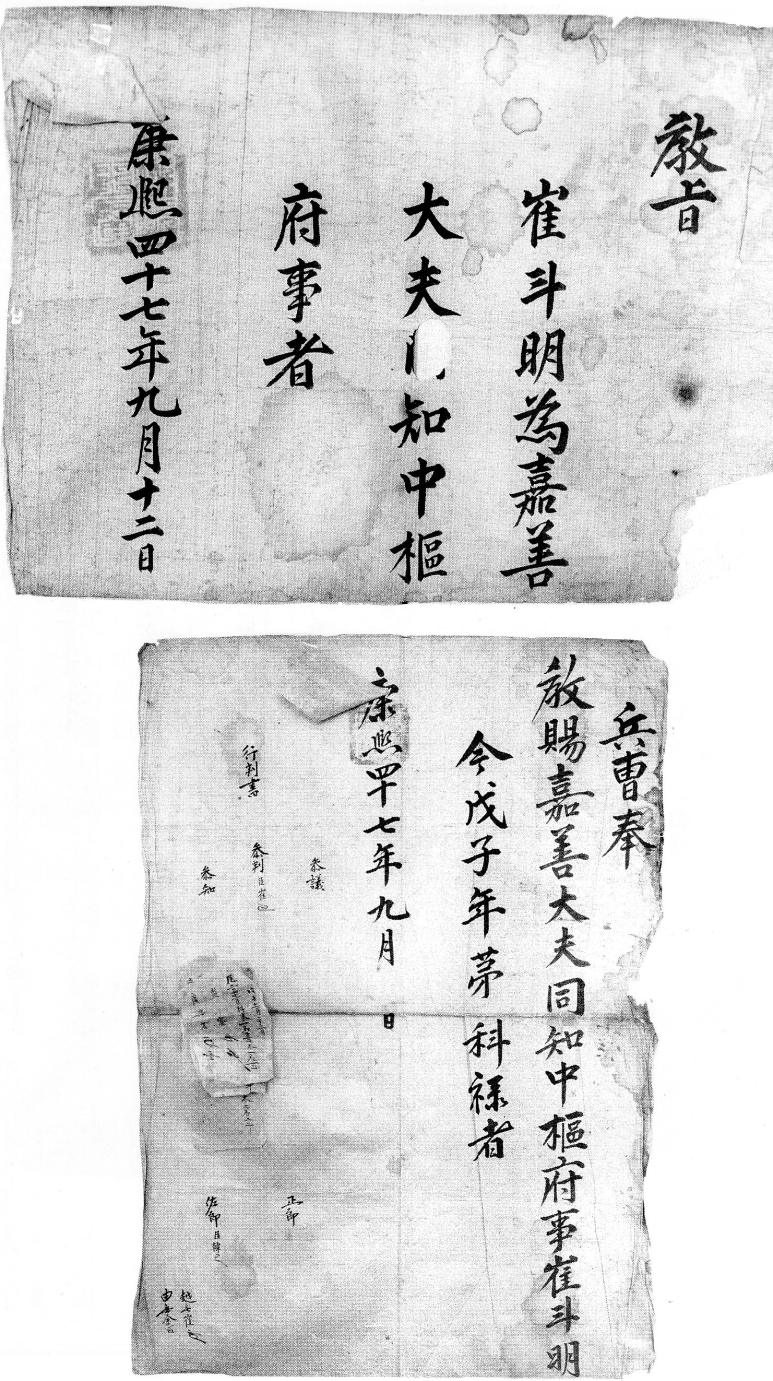 教旨
崔斗明為嘉善
大夫 知中樞
府事者
康熙四十七年九月十二日
兵曹奉
教賜嘉善大夫同知中樞府事崔斗明
今戊子年第 科祿者
康熙四十七年九月 日
參議
行判書
參判臣崔
參知
正郎
佐郎臣韓